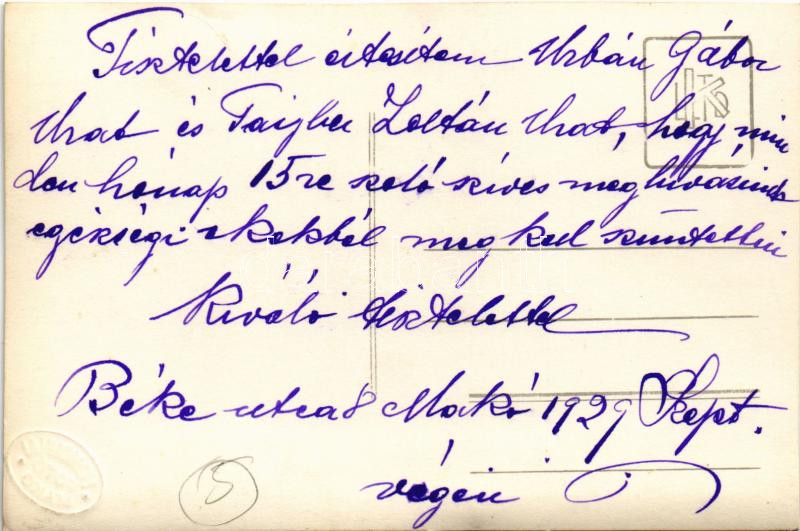 Tisztelettel értesítem Urbán Gábor
Urat és Taizler Zoltán Urat, hogy min
den hónap 15re szoló szíves meghívásunk
egézségi okokból meg kel szüntetni
Kiváló tisztelettel
Béke utca 8 Makó 1929 Szept.
végén
5